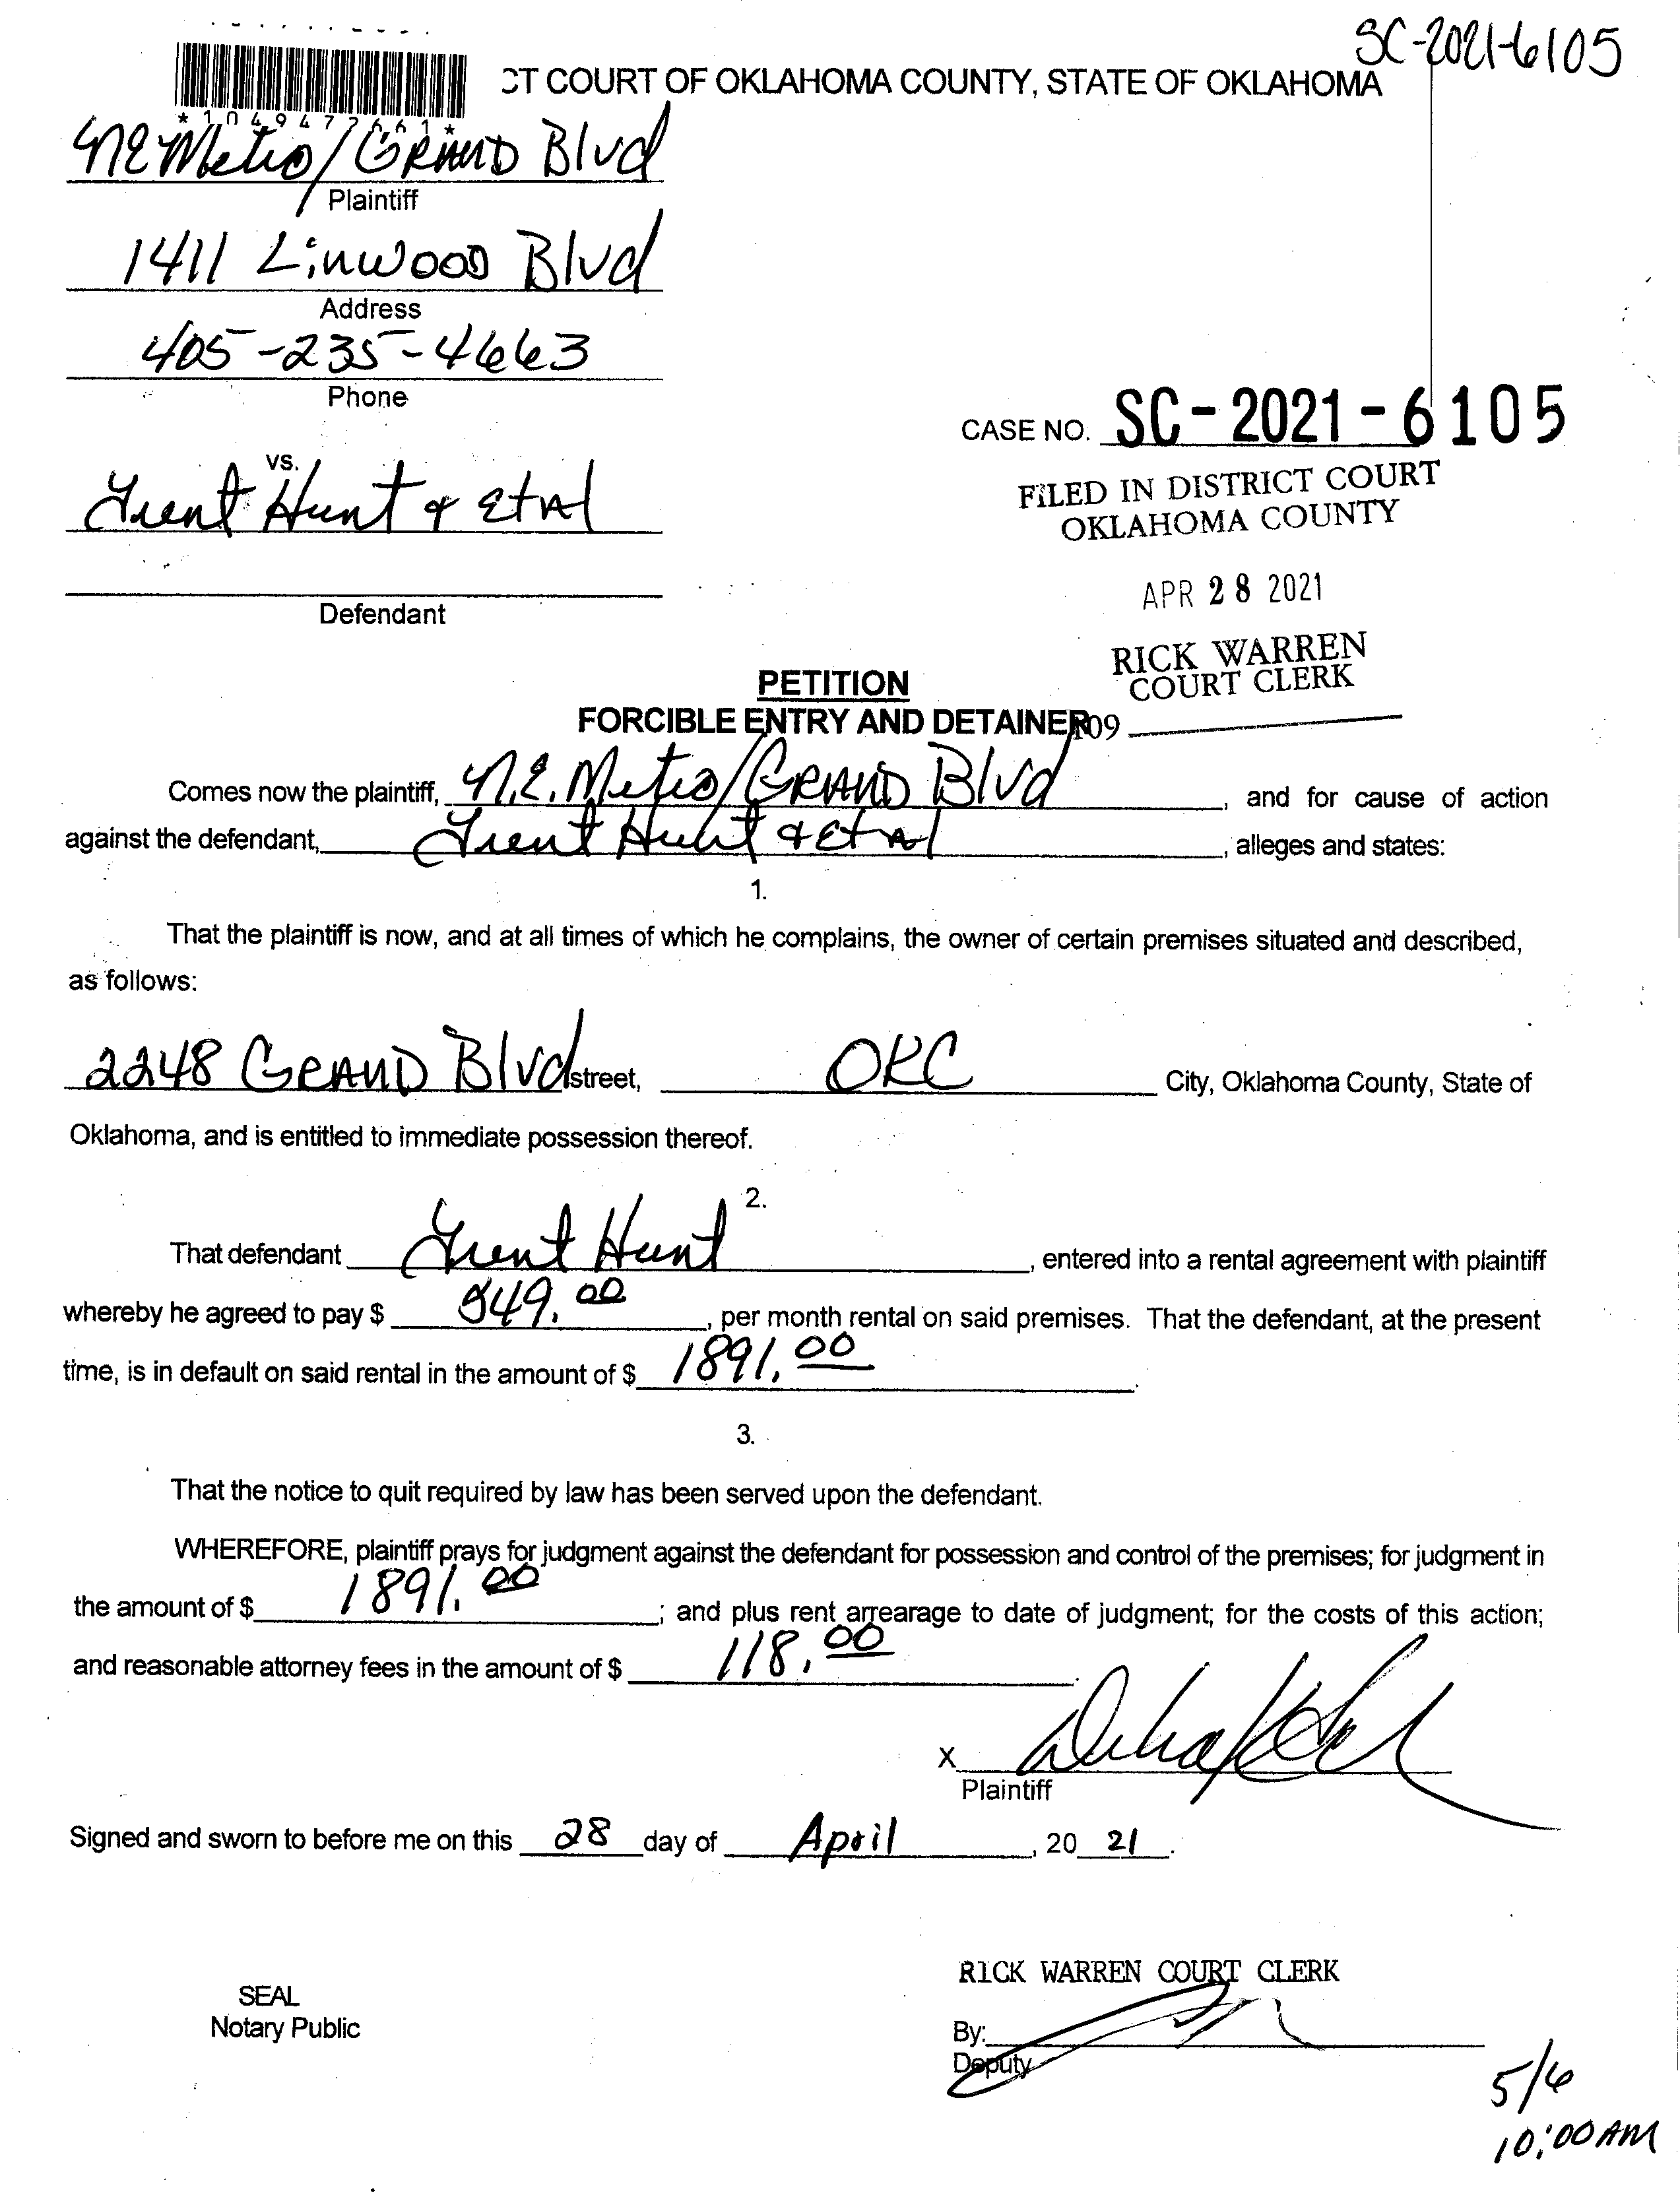 SC-2021-6105
CT COURT OF OKLAHOMA COUNTY, STATE OF OKLAHOMA
NE Metro/GRAND Blvd
Plaintiff
1411 Linwood Blvd
Address
405-235-4663
Phone
CASE NO. SC-2021-6105
vs.
Trent Hunt & Et Al
FILED IN DISTRICT COURT
OKLAHOMA COUNTY
APR 28 2021
Defendant
RICK WARREN
COURT CLERK
PETITION
FORCIBLE ENTRY AND DETAINER
109
Comes now the plaintiff, N.E. Metro/GRAND Blvd, and for cause of action
against the defendant, Trent Hunt & Et Al, alleges and states:
1.
That the plaintiff is now, and at all times of which he complains, the owner of certain premises situated and described,
as follows:
2248 GRAND Blvd street, OKC City, Oklahoma County, State of
Oklahoma, and is entitled to immediate possession thereof.
2.
That defendant Trent Hunt, entered into a rental agreement with plaintiff
whereby he agreed to pay $ 49.00, per month rental on said premises. That the defendant, at the present
time, is in default on said rental in the amount of $ 1891.00.
3.
That the notice to quit required by law has been served upon the defendant.
WHEREFORE, plaintiff prays for judgment against the defendant for possession and control of the premises; for judgment in
the amount of $ 1891.00; and plus rent arrearage to date of judgment; for the costs of this action;
and reasonable attorney fees in the amount of $ 118.00.
X
Plaintiff
Signed and sworn to before me on this 28 day of April, 20 21.
RICK WARREN COURT CLERK
SEAL
Notary Public
By:
Deputy
5/6
10:00 AM